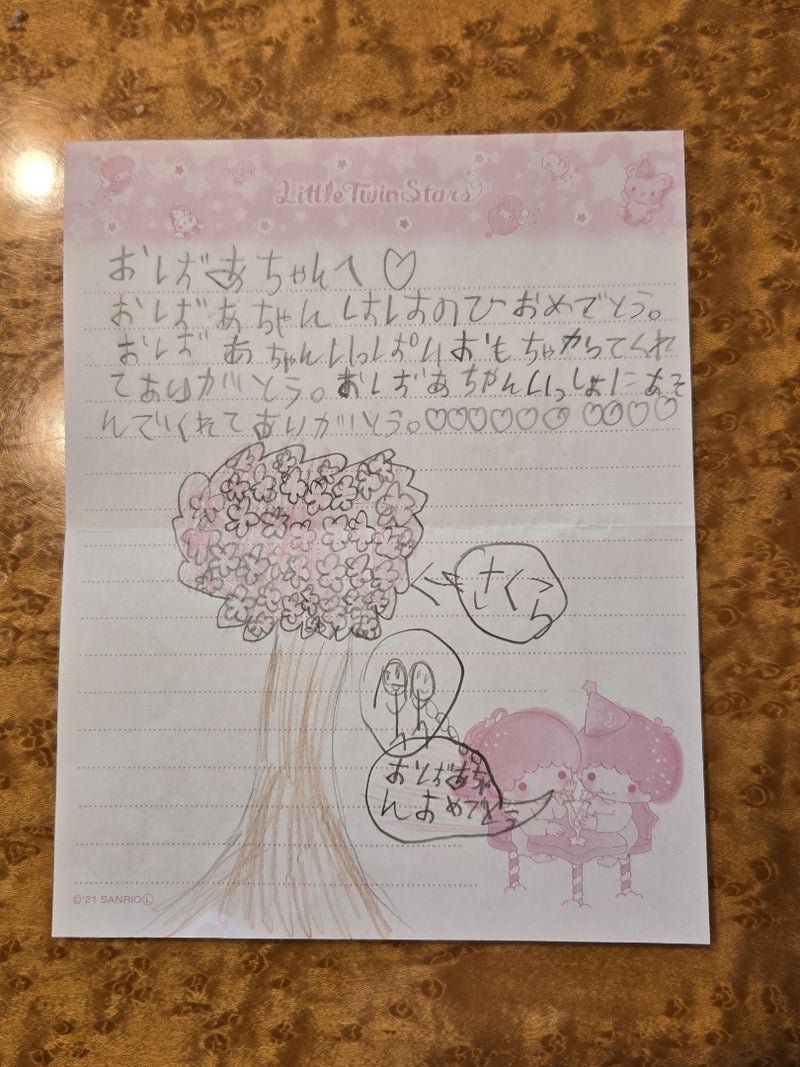 Little Twin Stars
おばあちゃんへ♡
おばあちゃんははのひおめでとう。
おばあちゃんいっぱいおもちゃかってくれ
てありがとう。おばあちゃんいっしょにあそ
んでくれてありがとう。♡♡♡♡♡♡♡ ♡♡♡♡
さくら
おばあちゃ
んおめでとう
©'21 SANRIO Ⓛ